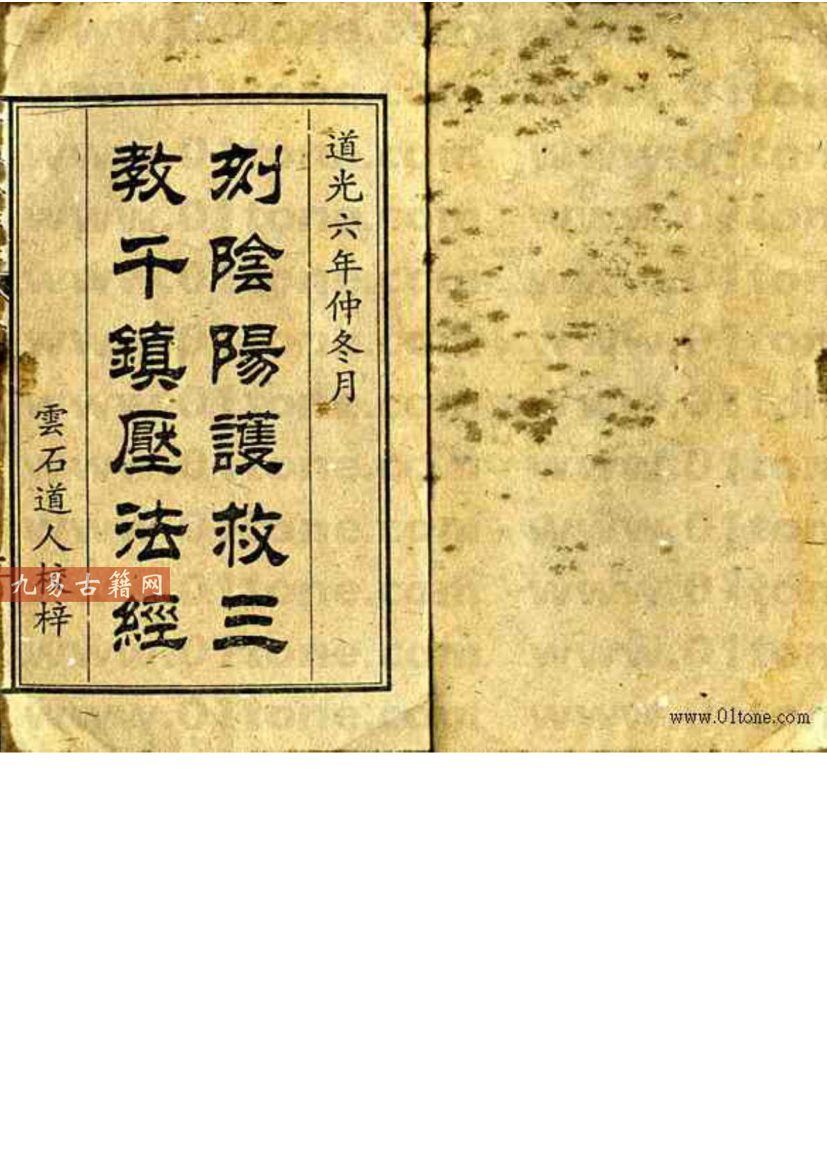 道光六年仲冬月
刻陰陽護救三
教千鎮壓法經
雲石道人校梓
九易古籍网
www.01tone.com